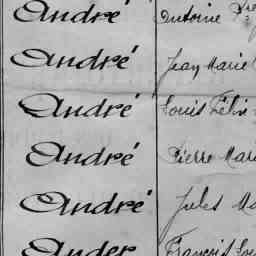 André Antoine
André Jean Marie
André Louis Félix
André Pierre Mari
André Jules Ma
Ander François